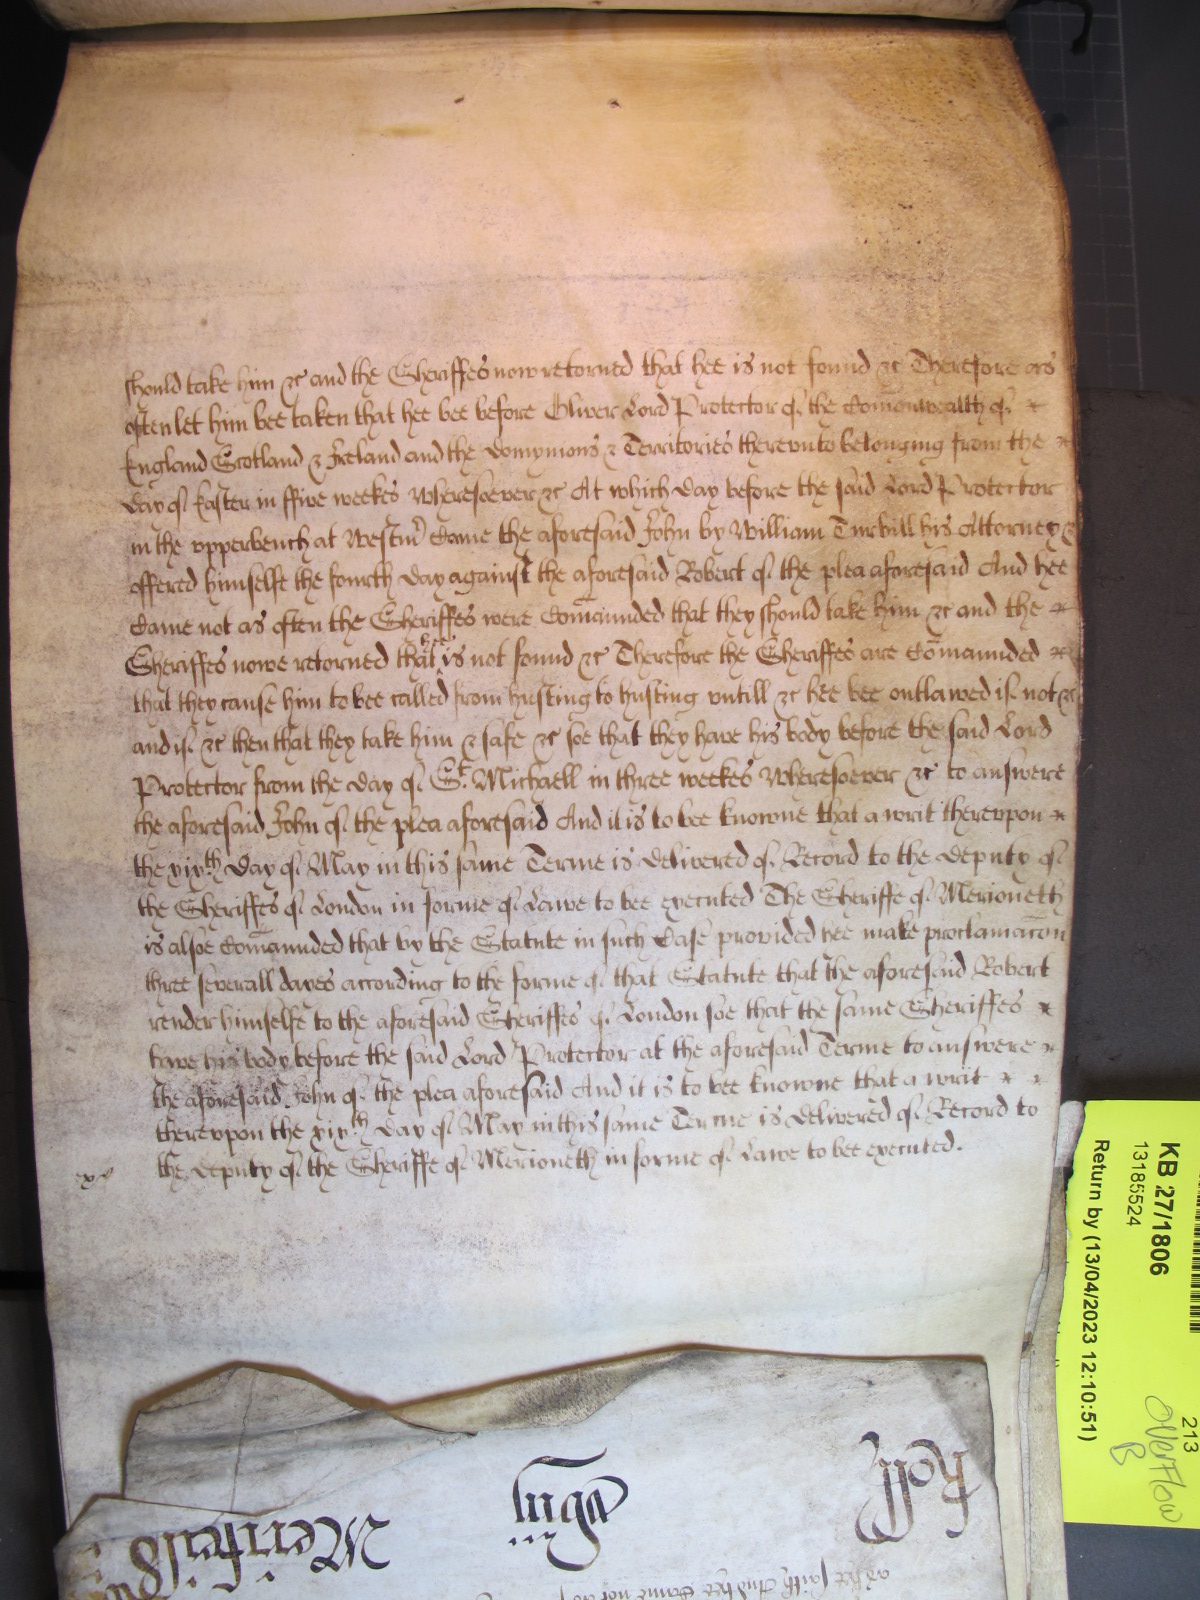 should take him &c and the Sheriffes now retorned that hee is not found &c Therefore as
often let him bee taken that hee bee before Oliver Lord Protector of the Comonwealth of
England Scotland & Ireland and the Domynions & Territories thereunto belonging from the
day of Easter in ffive weekes Wheresoever &c At which day before the said Lord Protector
in the upperbench at Westm̃ Came the aforesaid John by William Turbill his Attorney &
offered himselfe the fourth day against the aforesaid Robert of the plea aforesaid And hee
Came not as often the Sheriffes were Comaunded that they should take him &c and the
Sheriffes nowe retorned that hee is not found &c Therefore the Sheriffes are Comaunded
that they cause him to bee called from husting to husting untill &c hee bee outlawed if not &c
and if &c then that they take him & safe &c soe that they have his body before the said Lord
Protector from the day of St. Michaell in three weekes Wheresoever &c to answere
the aforesaid John of the plea aforesaid And it is to bee knowne that a writ thereupon
the xixth day of May in this same Terme is delivered of Record to the deputy of
the Sheriffes of London in forme of Lawe to bee executed The Sheriffe of Merioneth
is alsoe Comaunded that by the Statute in such Case provided hee make proclamacon
three severall dayes according to the forme of that Statute that the aforesaid Robert
render himselfe to the aforesaid Sheriffes of London soe that the same Sheriffes
have his body before the said Lord Protector at the aforesaid Terme to answere
the aforesaid John of the plea aforesaid And it is to bee knowne that a writ
thereupon the xixth day of May in this same Terme is delivered of Record to
the deputy of the Sheriffe of Merioneth in forme of Lawe to bee executed.
KB 27/1806
13185524
Return by (13/04/2023 12:10:51)
213
Overflow
B
Roll